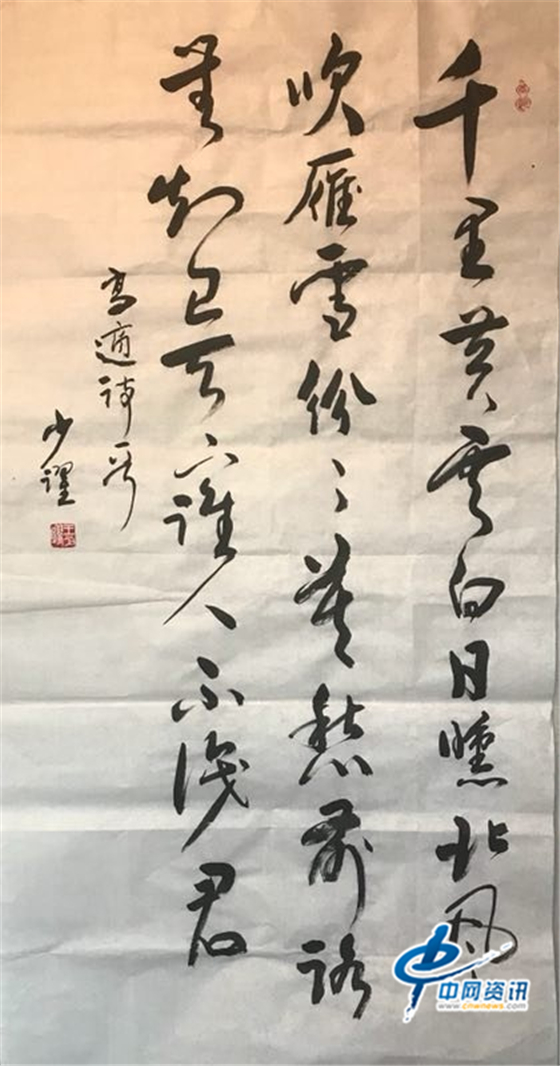 千里黄云白日曛北风
吹雁雪纷々莫愁前路
無知己天下谁人不识君
高適诗
少
中网资讯
www.cnwnews.com